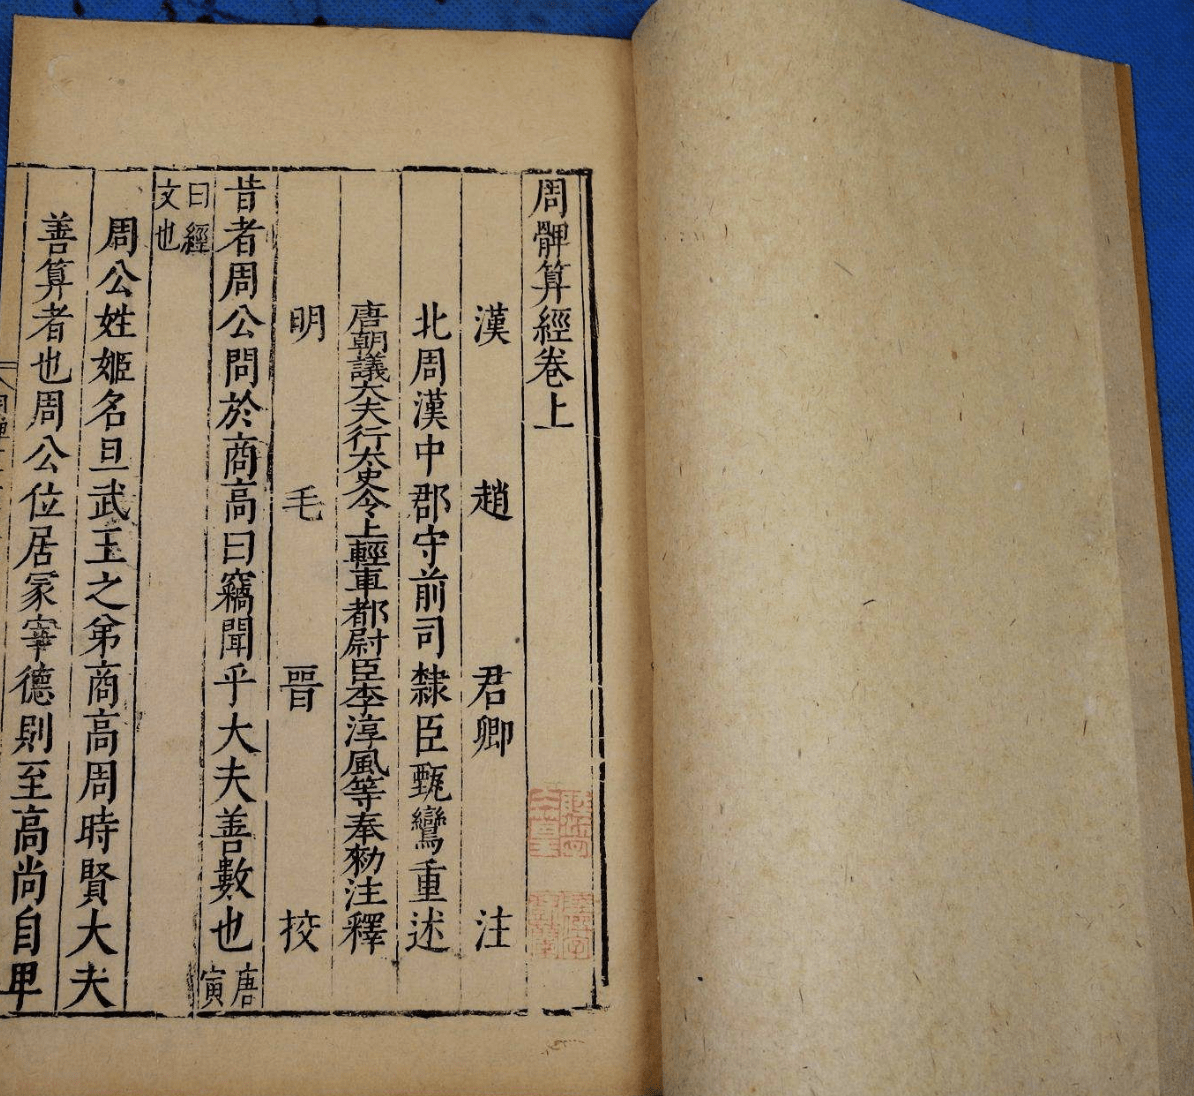 周髀算經卷上
漢 趙 君卿 注
北周漢中郡守前司隸臣甄鸞重述
唐朝議大夫行太史令上輕車都尉臣李淳風等奉勅注釋
明 毛 晉 挍
昔者周公問於商高曰竊聞乎大夫善數也唐寅
曰經
文也
周公姓姬名旦武王之弟商高周時賢大夫
善算者也周公位居冢宰德則至高尚自卑